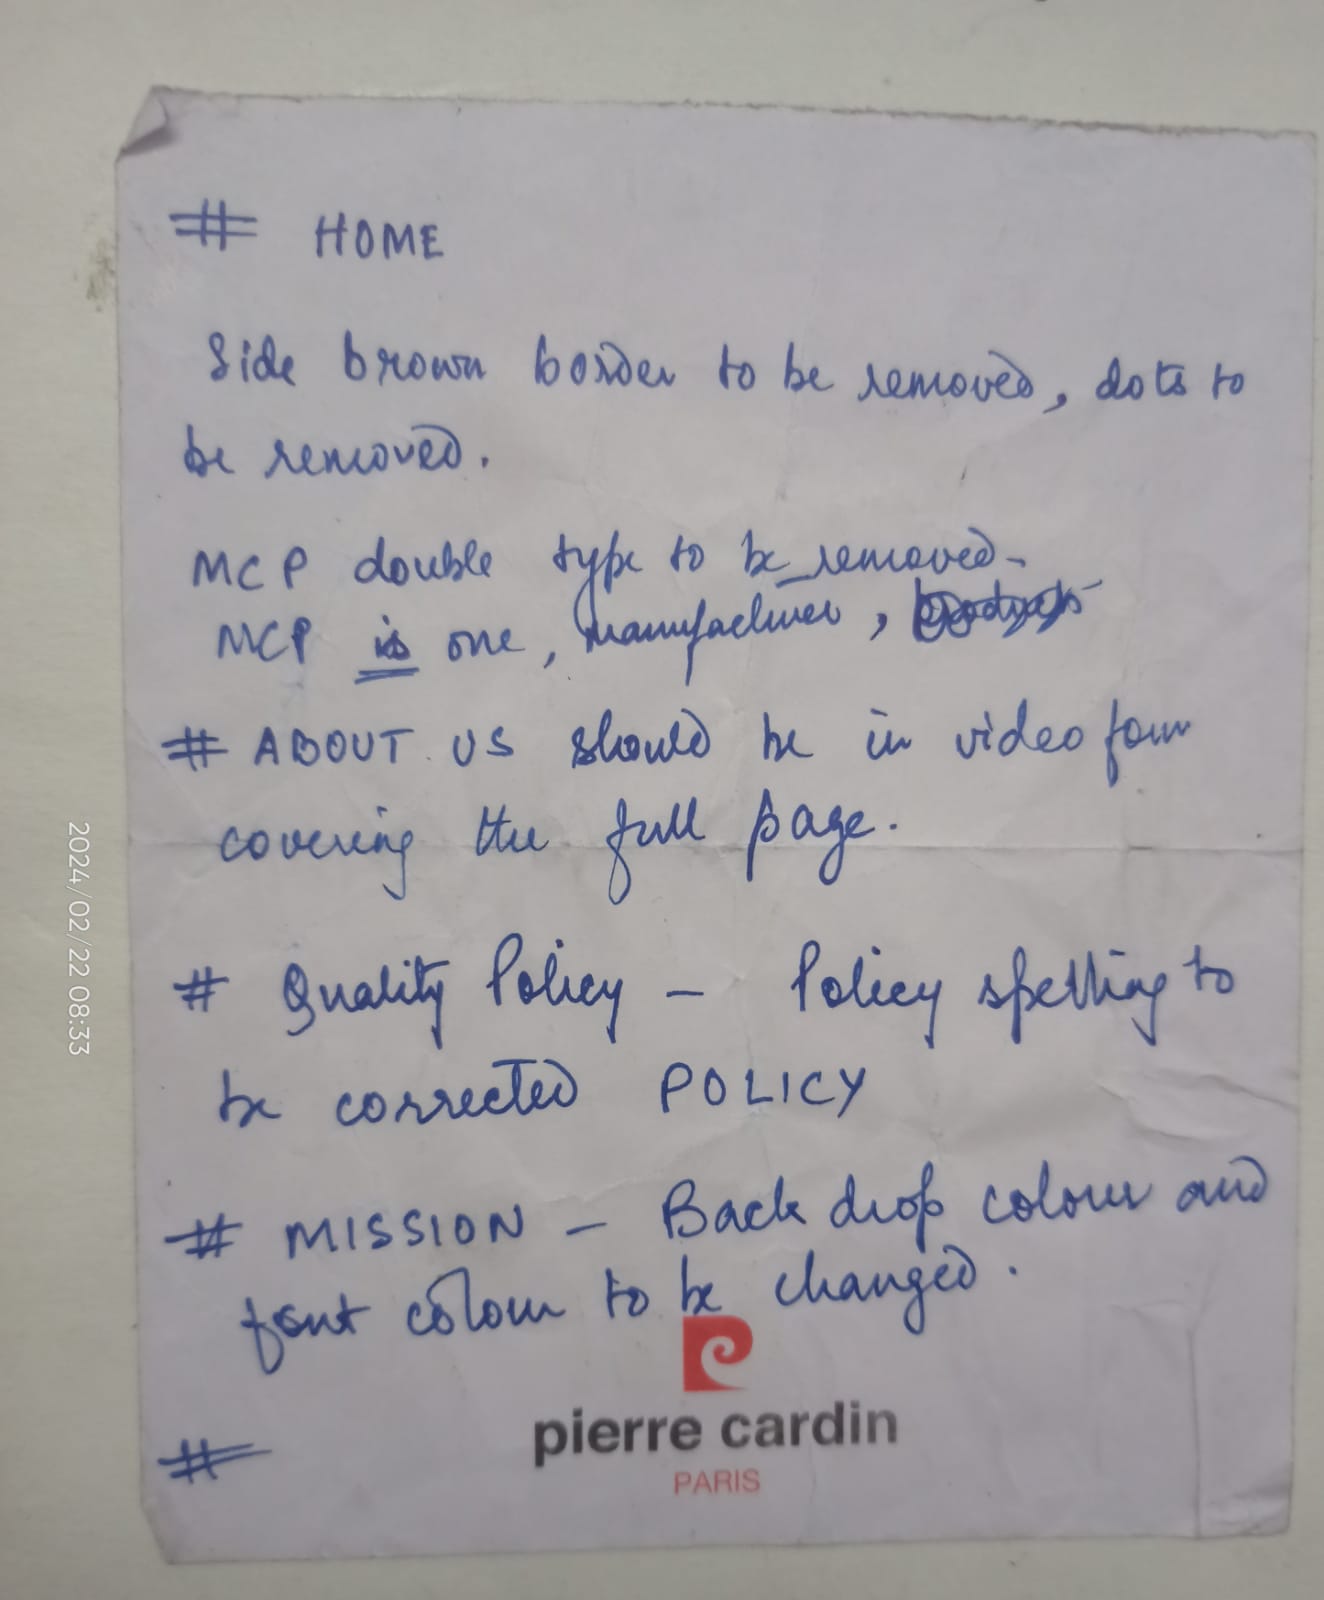 # HOME
Side brown border to be removed, dots to
be removed.
MCP double type to be removed-
MCP is one, manufacturer,
# ABOUT US should be in video form
covering the full page.
# Quality Policy - Policy spelling to
be corrected POLICY
# MISSION - Back drop colour and
font colour to be changed.
pierre cardin
PARIS
#
2024/02/22 08:33